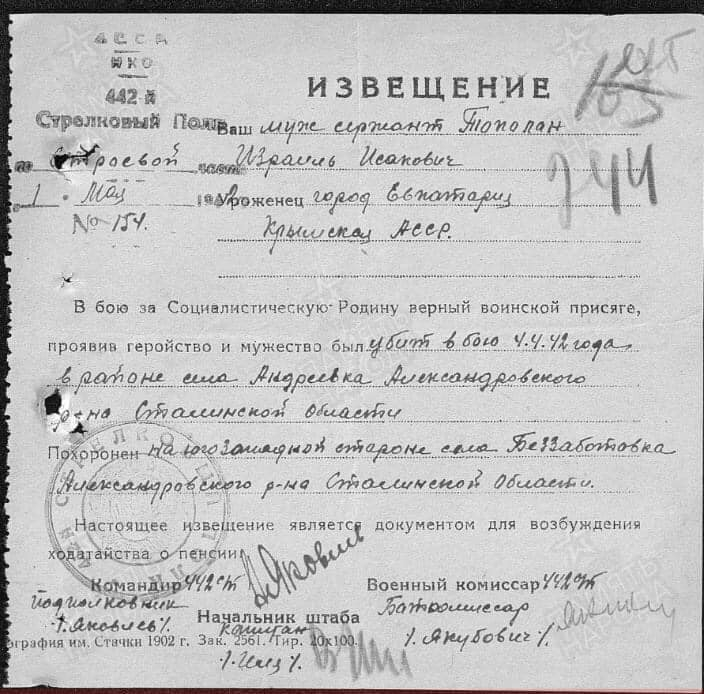 СССР
НКО
442-й
Стрелковый Полк
Строевой част.
1. Мая 1942
№ 154.
ИЗВЕЩЕНИЕ
244
Ваш муж сержант Тополан
Израиль Исакович
Уроженец город Евпатария
Крымской АССР.
В бою за Социалистическую Родину верный воинской присяге,
проявив геройство и мужество был убит в бою 4.4.42 года
в районе села Андреевка Александровского
р-на Сталинской Области
Похоронен на югозападной стороне села Беззаботовка
Александровского р-на Сталинской Области.
Настоящее извещение является документом для возбуждения
ходатайства о пенсии.
Командир 442 СП
подполковник
/.Яковлев/.
Яковлев
Начальник штаба
капитан
Военный комиссар 442 СП
Баткомиссар
/.Якубович/.
ография им. Стачки 1902 г. Зак. 2561. Тир. 20х100.